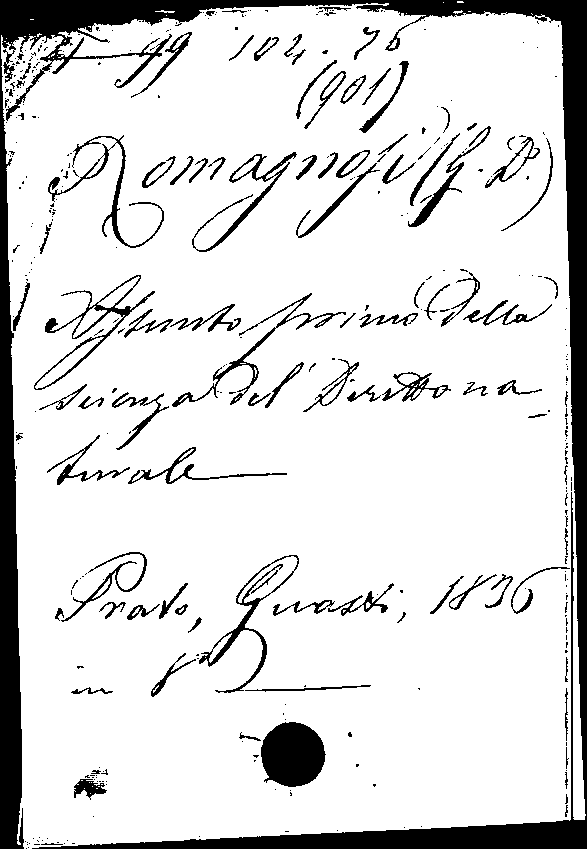 99 102. 76
(901)
Romagnosi (G. D.)
Assunto primo della
scienza del Diritto na-
turale
Prato, Guasti, 1836
in 8º